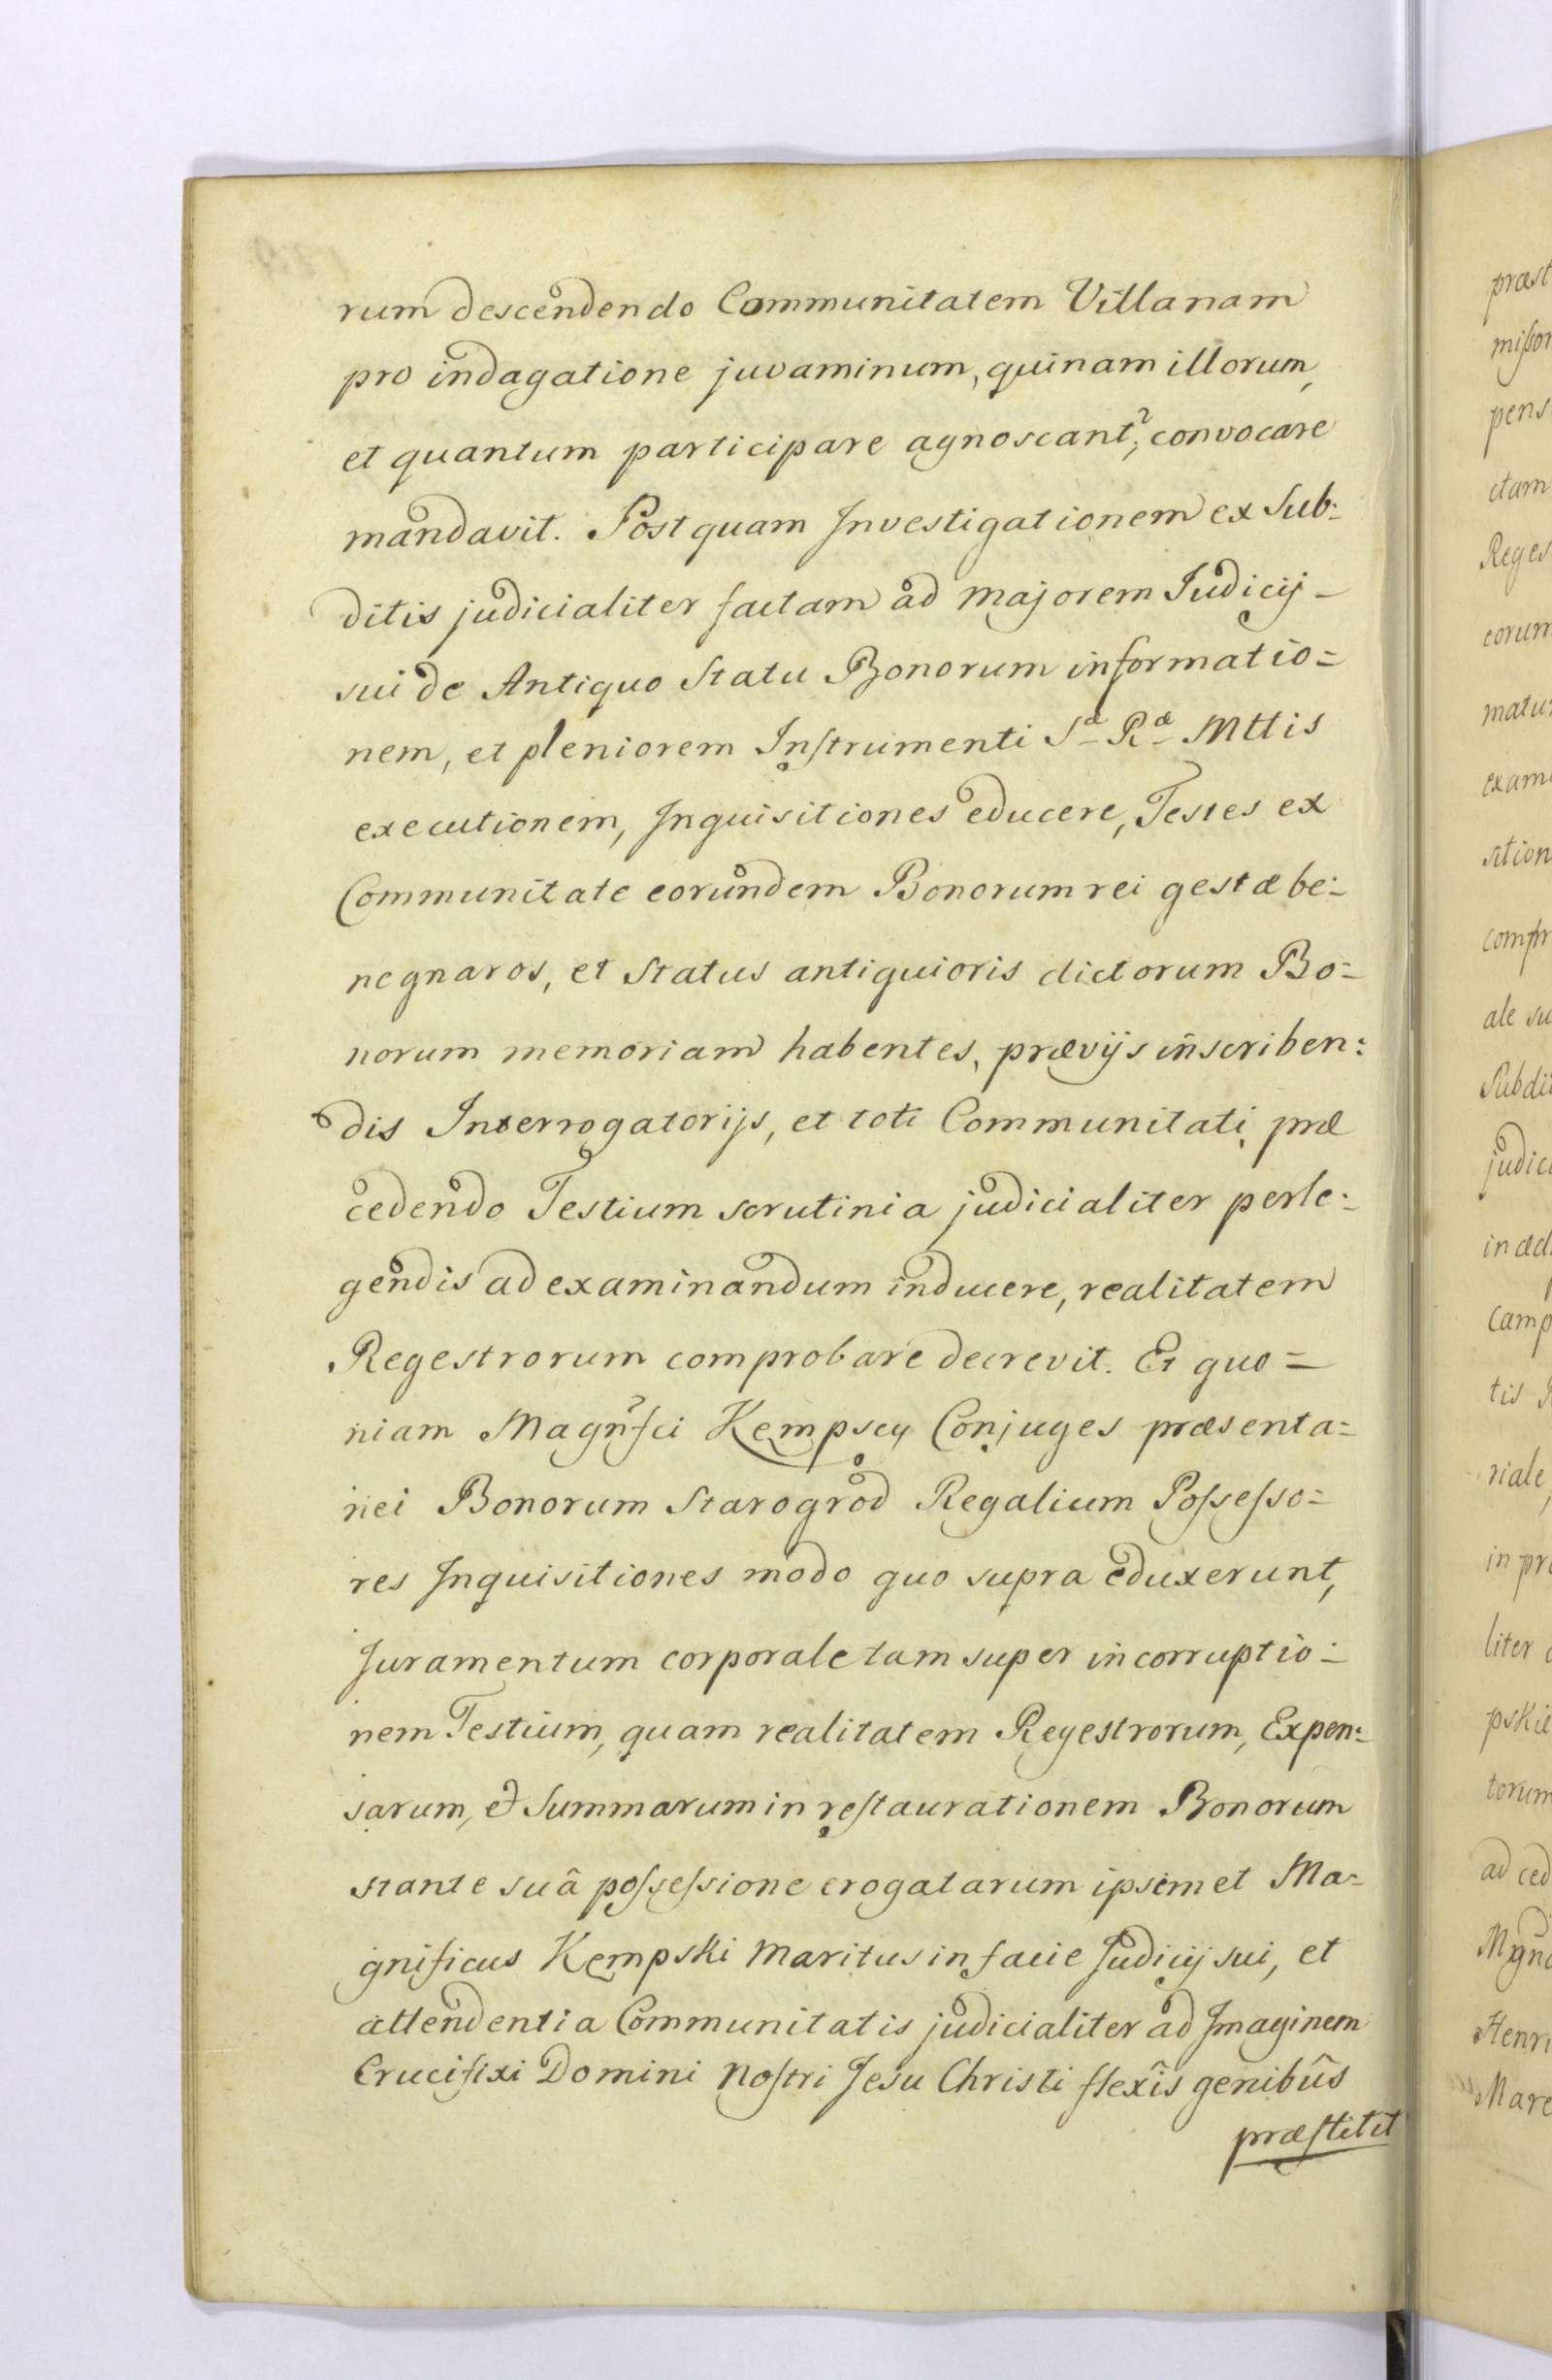 rum descendendo Communitatem Villanam
pro indagatione juvaminum, quinam illorum,
et quantum participare agnoscant?; convocare
mandavit. Postquam Investigationem ex Sub=
ditis judicialiter factam ad majorem Judicij
sui de Antiquo Statu Bonorum informatio=
nem, et pleniorem Inſtrumenti Sæ Ræ Mttis
executionem, Inquisitiones educere, Testes ex
Communitate eorundem Bonorum rei gestæ be=
ne gnaros, et Status antiquioris dictorum Bo=
norum memoriam habentes, prævijs inscriben=
dis Interrogatorijs, et toti Communitati, præ
cedendo Testium scrutinia judicialiter perle=
gendis ad examinandum inducere, realitatem
Regestrorum comprobare decrevit. Et quo=
niam Magnfici Kempscy Conjuges præsenta=
nei Bonorum Starogrod Regalium Poſseſso=
res Inquisitiones modo quo supra eduxerunt,
Juramentum corporale tam super incorruptio=
nem Testium, quam realitatem Regestrorum, Expen=
sarum, et Summarum in reſtaurationem Bonorum
stante suâ poſseſsione erogatarum ipsemet Ma=
gnificus Kempski Maritus in facie Judicij sui, et
attendentia Communitatis judicialiter ad Imaginem
Crucifixi Domini Noſtri Jesu Christi flexîs genibûs
præſtitit
præst
miſsor
pens
ctam
Reges
eorum
matur
exam
sition
comp
ale su
Subdi
judic
in æd
Camp
tis
riale,
in pr
liter
pskie
torum
ad ced
Mgn
Henri
Mare